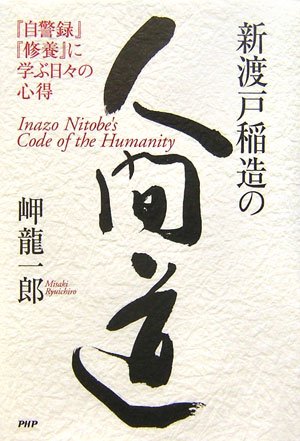 新渡戸稲造の
人間道
『自警録』
『修養』に
学ぶ日々の
心得
Inazo Nitobe's
Code of the Humanity
岬龍一郎
Misaki
Ryuichiro
PHP